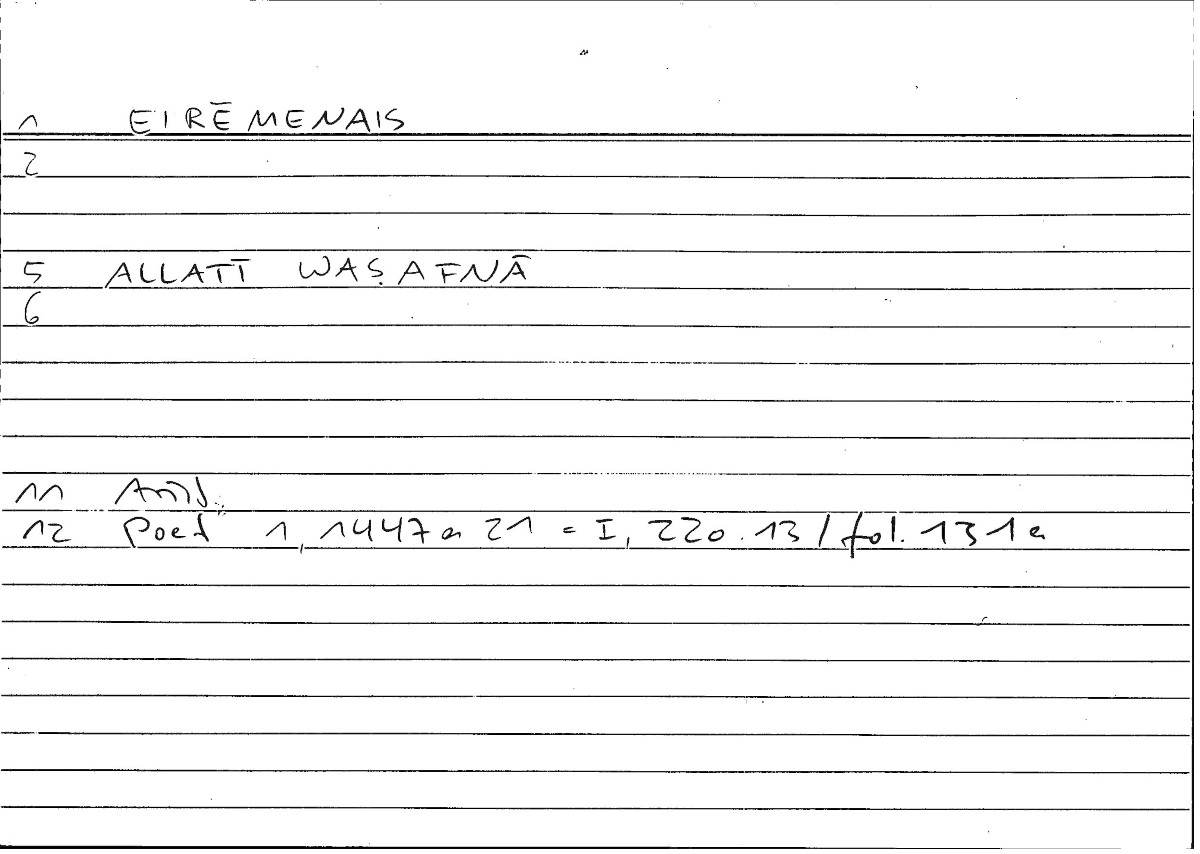 1 EIRĒMENAIS
2
5 ALLATĪ WAṢAFNĀ
6
11 Arist.
12 Poet 1, 1447 a 21 = I, 220.13 / fol. 131 a